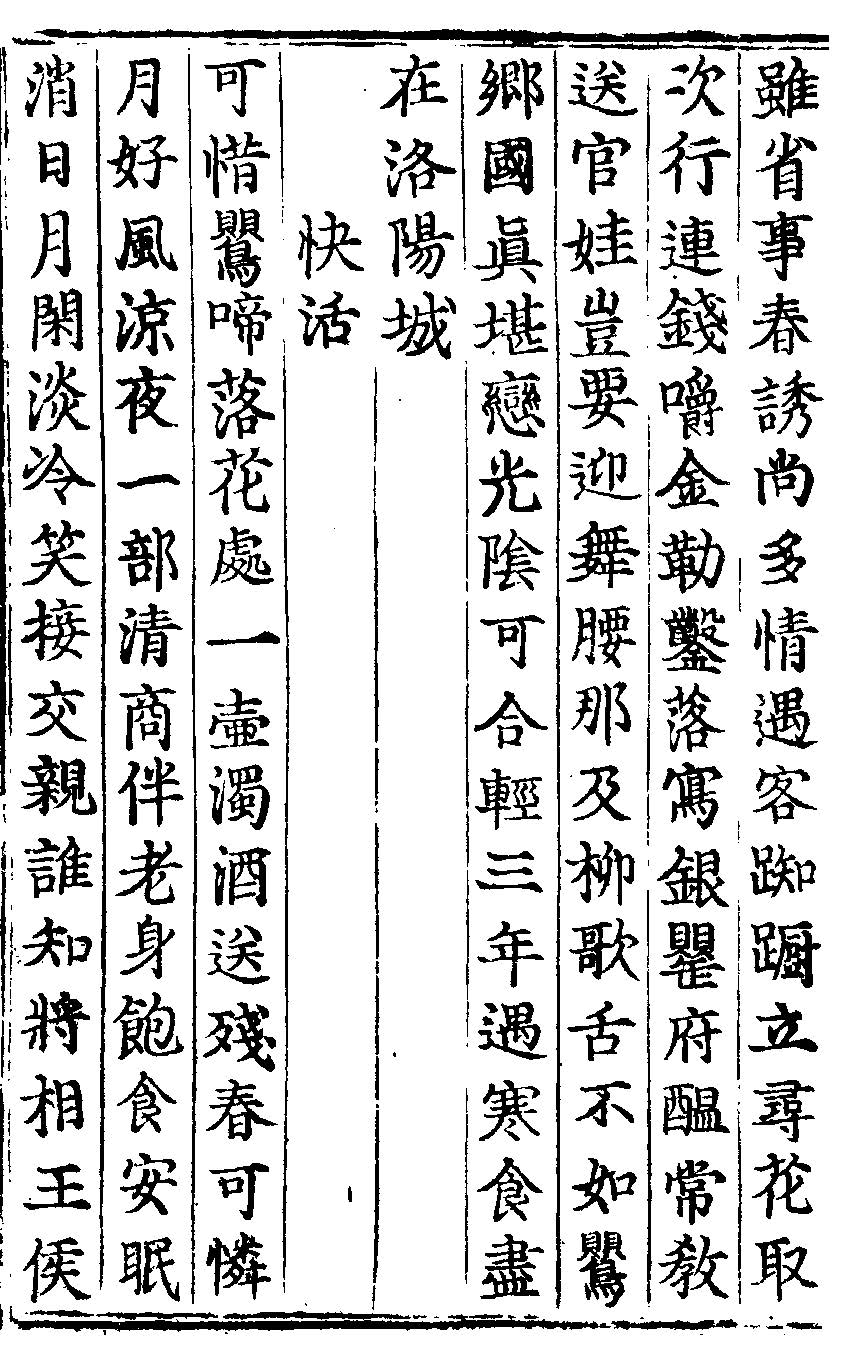 雖省事春誘尚多情遇客踟蹰立尋花取
次行連錢嚼金勒鑿落寫銀甖府醖常教
送官娃豈要迎舞腰那及柳歌舌不如鸎
鄉國眞堪戀光陰可合輕三年遇寒食盡
在洛陽城
快活
可惜鸎啼落花處一壷濁酒送殘春可憐
月好風涼夜一部清商伴老身飽食安眠
消日月閑淡冷笑接交親誰知將相王侯